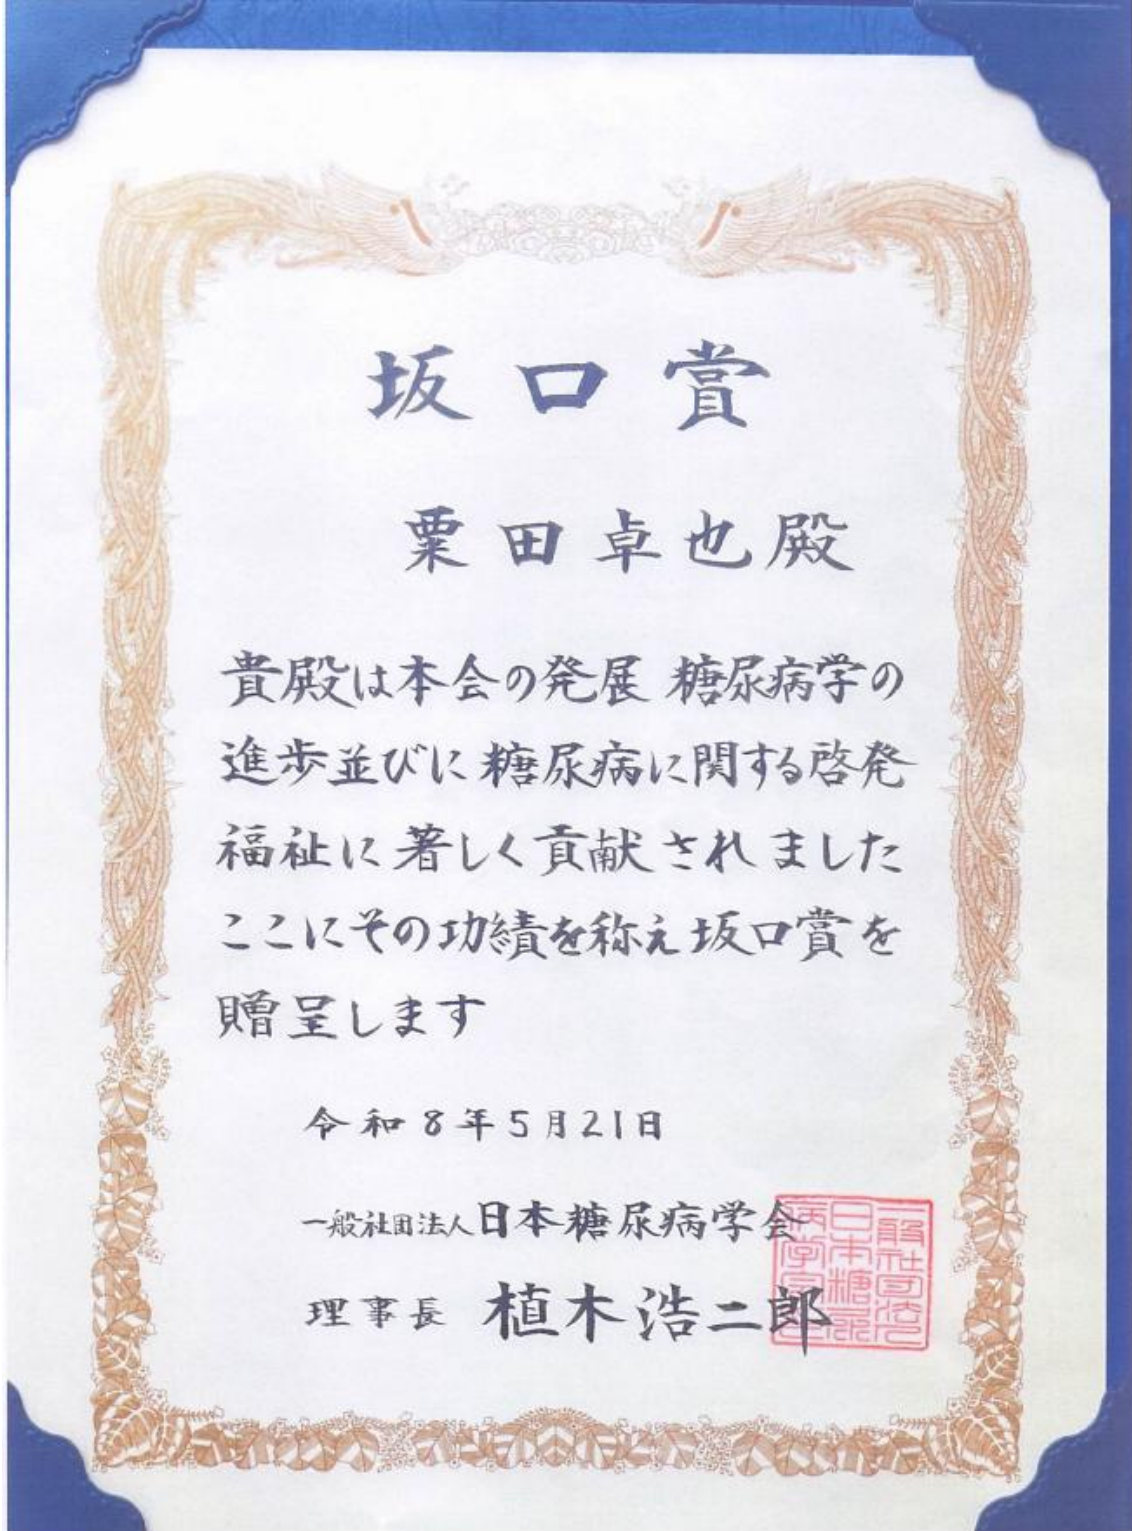 坂口賞
粟田卓也殿
貴殿は本会の発展 糖尿病学の
進歩並びに糖尿病に関する啓発
福祉に著しく貢献されました
ここにその功績を称え坂口賞を
贈呈します
令和8年5月21日
一般社団法人日本糖尿病学会
理事長 植木浩二郎